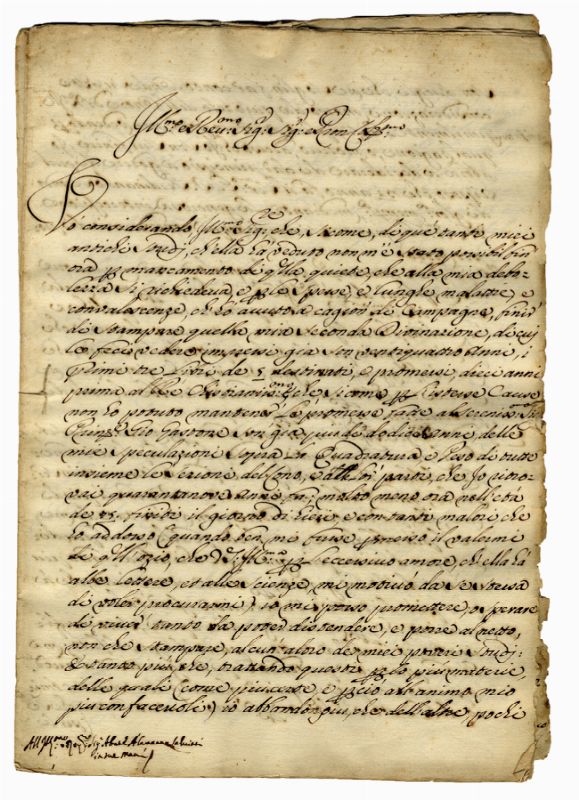 Ill.mo e Rev.mo Sig.r Sig.r e Pron Col.mo
Vo considerando Ill.mo Sig.re che, sicome, di que' tanti miei
antichi Studj, ch'ella hà veduto non m'è stato possibil fin
ora p mancamento di q.lla quiete, che alla mia debo-
lezza si richiedeva, e p le spesse, e lunghe malattie, e
convalescenze, ch'hò avuto a cagion di Campagne, finir
di stampare quella mia seconda Divinazione, di cui
le feci vedere impressi già son ventiquattro anni, i
primi tre libri de' 5 destinati, e promessi, dieci anni
prima alla Cristianiss.ma che sicome p l'istesse Cause
non hò potuto mantener la promessa fatta al Sereniss.
Prin.pe Gio Gastone son già più di dodici anni delle
mie Speculazioni sopra la Quadratura e Peso di tutte
insieme le Sezioni del Cono, e alle lor parti, che Io ritro-
vai quarantanove anni fa; molto meno ora nell'età
di 75. finiti il giorno di hieri e con tanti malori che
hò addosso (quando ben mi fusse permesso il valermi
di q.ll'ozio, che V.S. Ill.ma p l'eccessivo amore, ch'ella hà
alle lettere, et alle Scienze, mi motivò da se stessa
di voler procurarmi) io mi posso promettere, o sperare
di viver tanto da poter distendere, e porre al netto,
non che stampare, alcun'altro de' miei poveri Studj:
e tanto più che, trattando questi p lo più materie,
delle quali (come piacciute e p ciò all'animo mio
più confacevoli) io abbandonai, che dell'altre pochi
All Ill.mo Sig.r Abate Alamanno Salviati
in sue mani